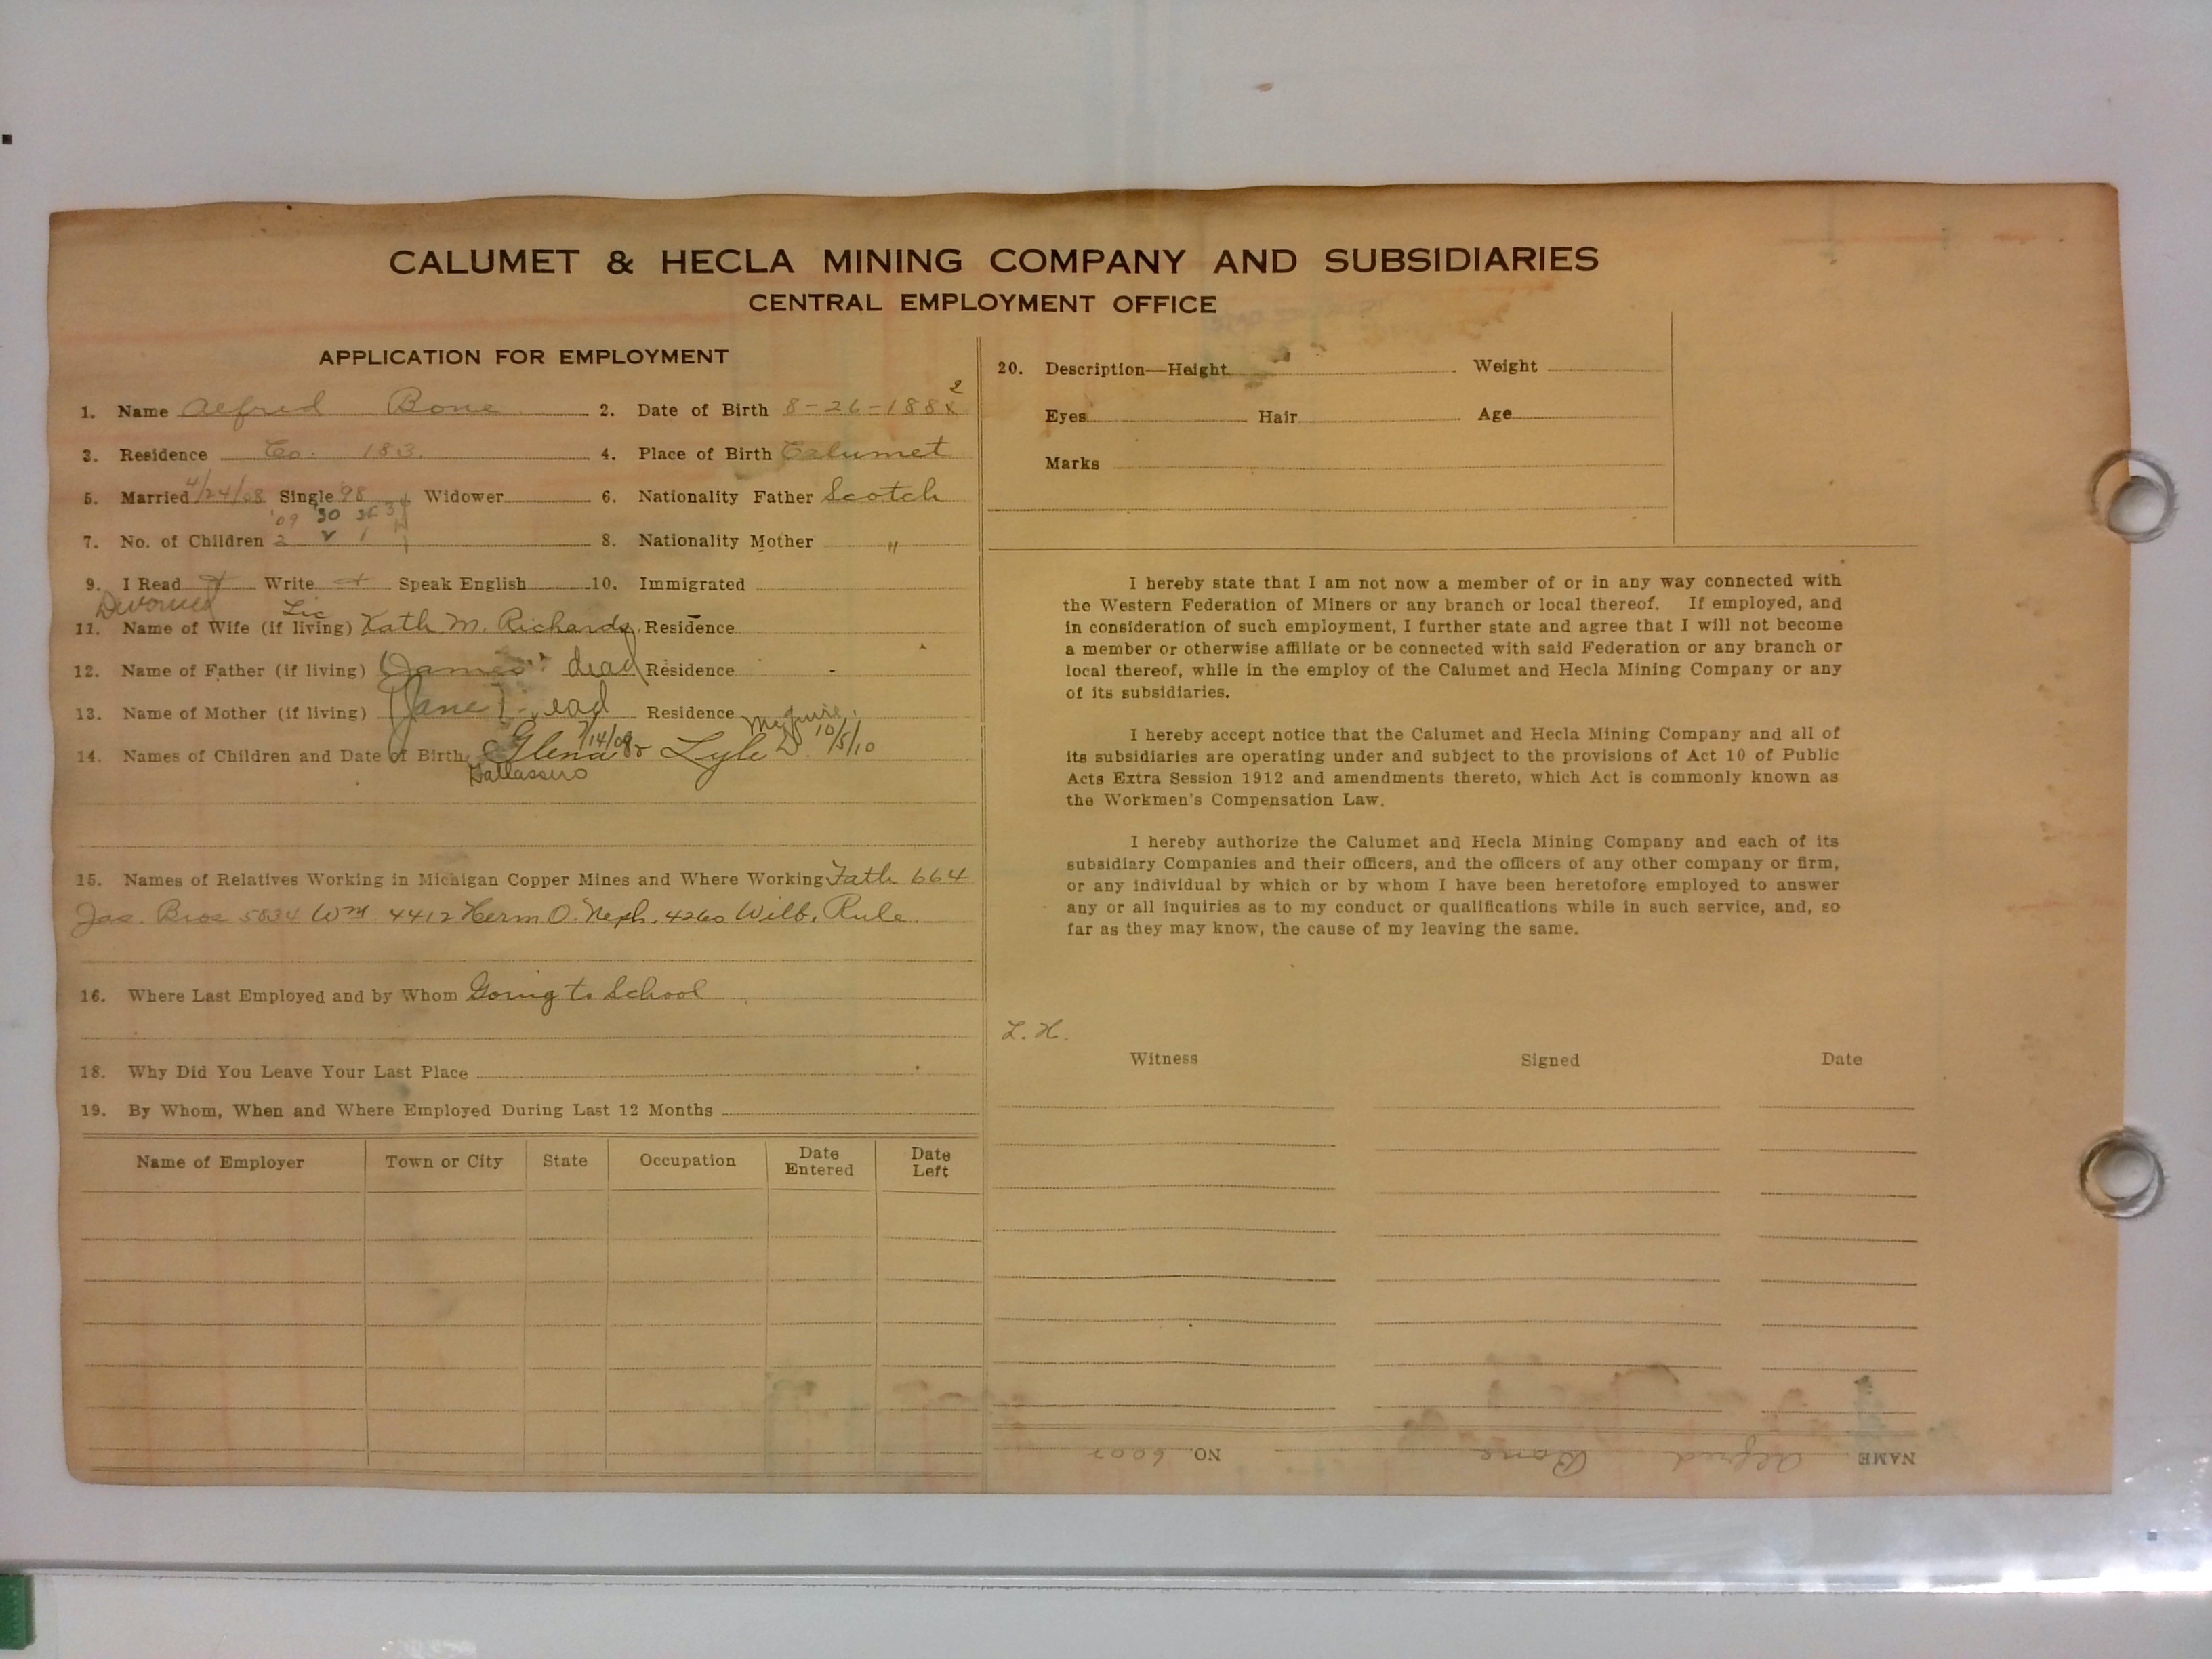 CALUMET & HECLA MINING COMPANY AND SUBSIDIARIES
CENTRAL EMPLOYMENT OFFICE
APPLICATION FOR EMPLOYMENT
1. Name Alfred Bone 2. Date of Birth 8-26-188 2
3. Residence Co. 183. 4. Place of Birth Calumet
5. Married 4/24/08 Single '98 Widower 6. Nationality Father Scotch
'09 '30
7. No. of Children 2 1 8. Nationality Mother "
9. I Read + Write + Speak English 10. Immigrated
Divorced Lic
11. Name of Wife (if living) Kath. M. Richards. Residence
12. Name of Father (if living) (James) dead Residence -
13. Name of Mother (if living) (Jane) Residence
14. Names of Children and Date of Birth Glena 7/14/08 Lyle D. 10/5/10
15. Names of Relatives Working in Michigan Copper Mines and Where Working Fath 664
Jas. Bros 5834 Wm 4412 Herm O. Neph. 4260 Wilb. Rule
16. Where Last Employed and by Whom Going to School
18. Why Did You Leave Your Last Place
19. By Whom, When and Where Employed During Last 12 Months
Name of Employer Town or City State Occupation Date Entered Date Left
20. Description—Height Weight
Eyes Hair Age
Marks
I hereby state that I am not now a member of or in any way connected with
the Western Federation of Miners or any branch or local thereof. If employed, and
in consideration of such employment, I further state and agree that I will not become
a member or otherwise affiliate or be connected with said Federation or any branch or
local thereof, while in the employ of the Calumet and Hecla Mining Company or any
of its subsidiaries.
I hereby accept notice that the Calumet and Hecla Mining Company and all of
its subsidiaries are operating under and subject to the provisions of Act 10 of Public
Acts Extra Session 1912 and amendments thereto, which Act is commonly known as
the Workmen's Compensation Law.
I hereby authorize the Calumet and Hecla Mining Company and each of its
subsidiary Companies and their officers, and the officers of any other company or firm,
or any individual by which or by whom I have been heretofore employed to answer
any or all inquiries as to my conduct or qualifications while in such service, and, so
far as they may know, the cause of my leaving the same.
L. H.
Witness Signed Date
NAME Alfred Bone NO. 6002